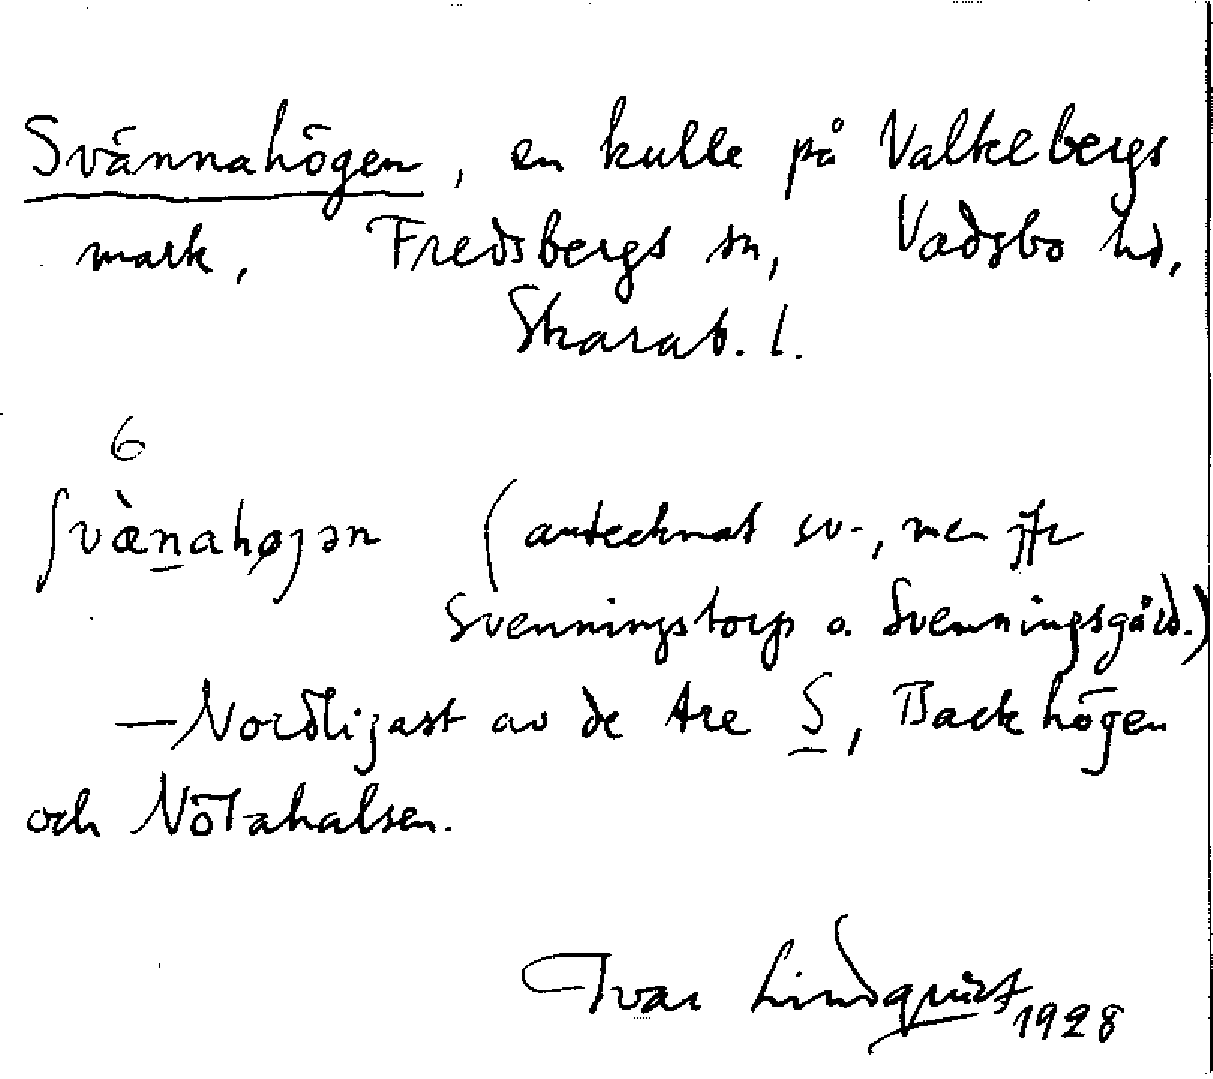 Svännahögen, en kulle på Valkebergs
mark, Fredsbergs sn, Vadsbo hd,
Skarab. l.
6
ʃvæ̀n̲ahøȷən (antecknat sv-, men jfr
Svenningstorp o. Svenningsgård.)
— Nordligast av de tre S, Backhögen
och Nötahalsen.
Ivar Lindquist 1928